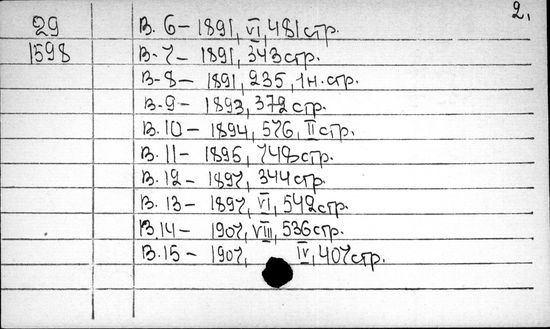 2.
29 В. 6 – 1891, VI, 481 стр.
1598 В. 7 – 1891, 343 стр.
В. 8 – 1891, 235, 1 н. стр.
В. 9 – 1893, 372 стр.
В. 10 – 1894, 576, II стр.
В. 11 – 1896, 748 стр.
В. 12 – 1897, 344 стр.
В. 13 – 1897, VI, 542 стр.
В. 14 – 1907, VIII, 536 стр.
В. 15 – 1907, IV, 407 стр.